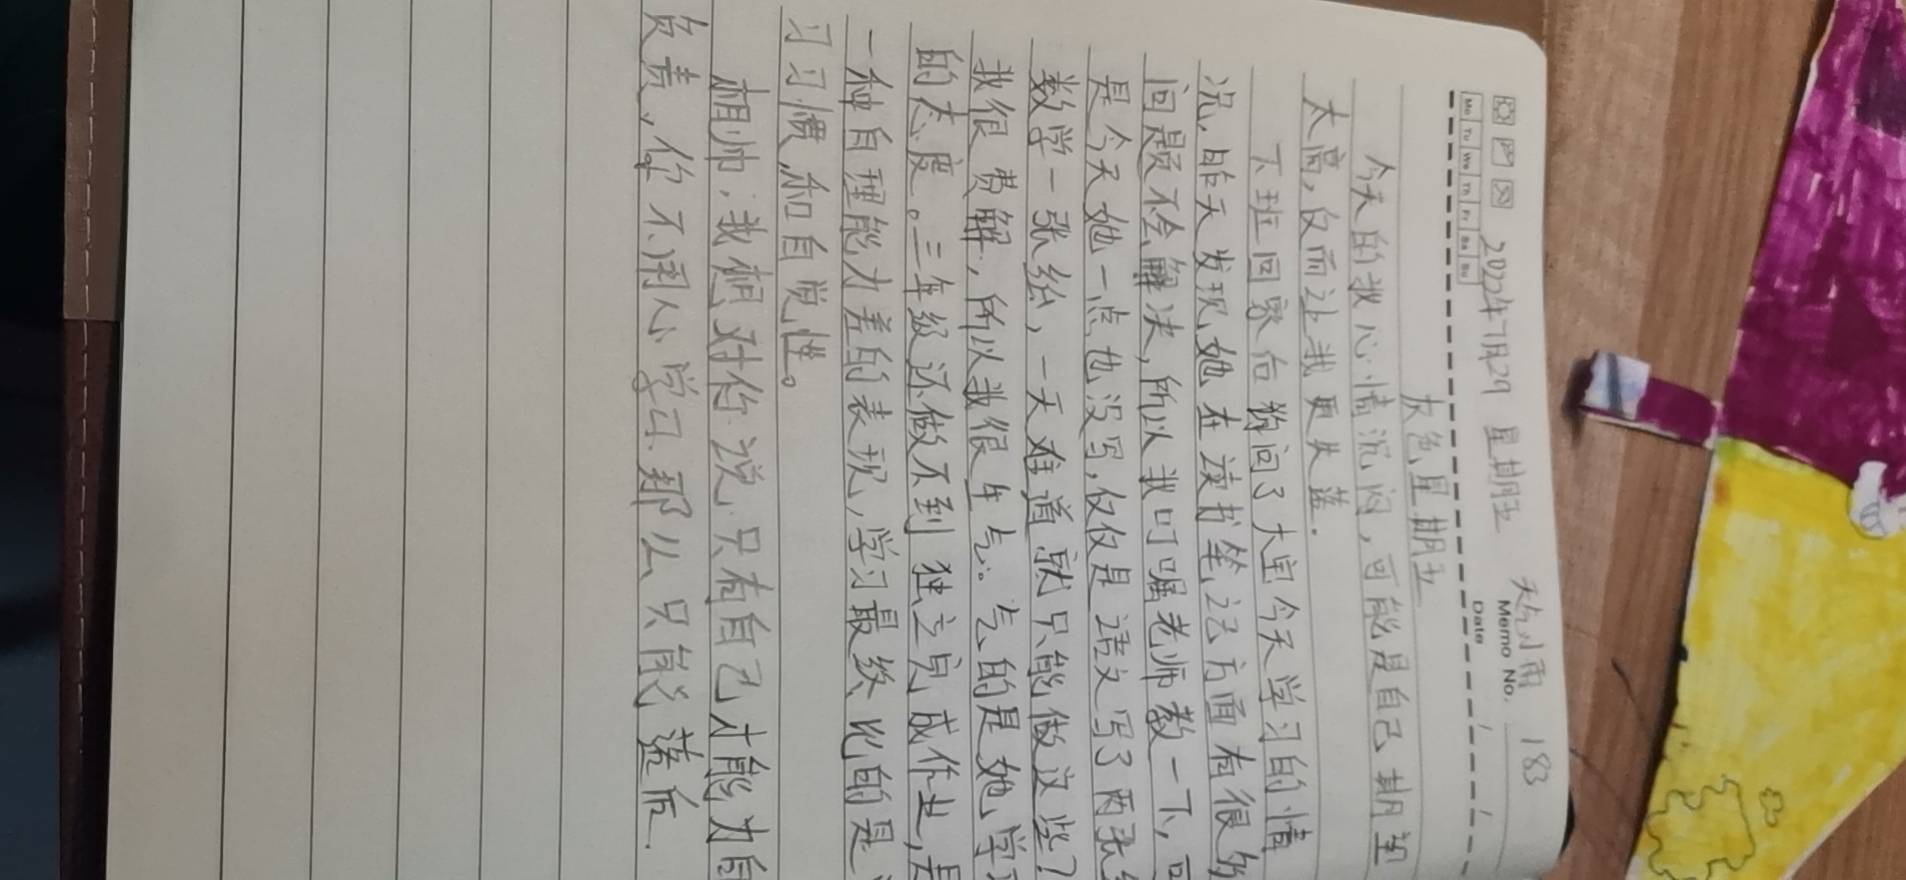 大与小雨 183
Memo No.
Mo Tu We Th Fr Sa Su
Date / /
2022年7月29 星期五
灰色星期五
今天的我心情沉闷,可能是自己期望
太高,反而让我更失落.
下班回家后询问了大宝今天学习的情
况,昨天发现她在读书笔记方面有很多
问题不会解决,所以我叮嘱老师教一下,可
是今天她一点也没写,仅仅是语文写了两张
数学一张纸,一天难道就只能做这些?
我很费解,所以我很生气。气的是她学习
的态度。三年级还做不到独立完成作业,是
一种自理能力差的表现,学习最终比的是
习习惯和自觉性。
相帅,我想对你说,只有自己才能为自
负责,你不用心学习那么只能落后.